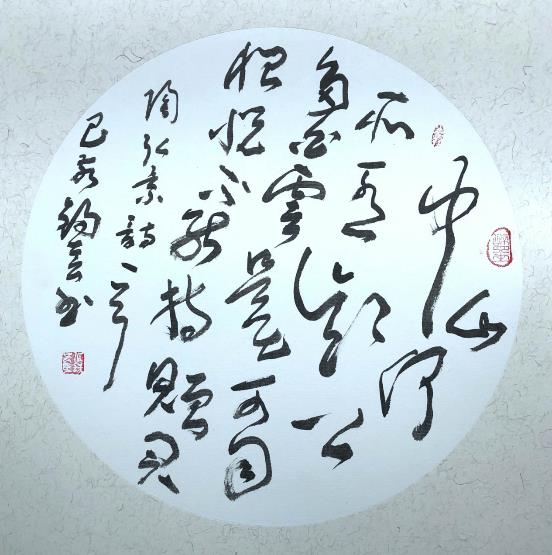 中山何
所有嶺上
多白雲是可自
怡悦不能持贈君
陶弘景詩一首
己亥 书